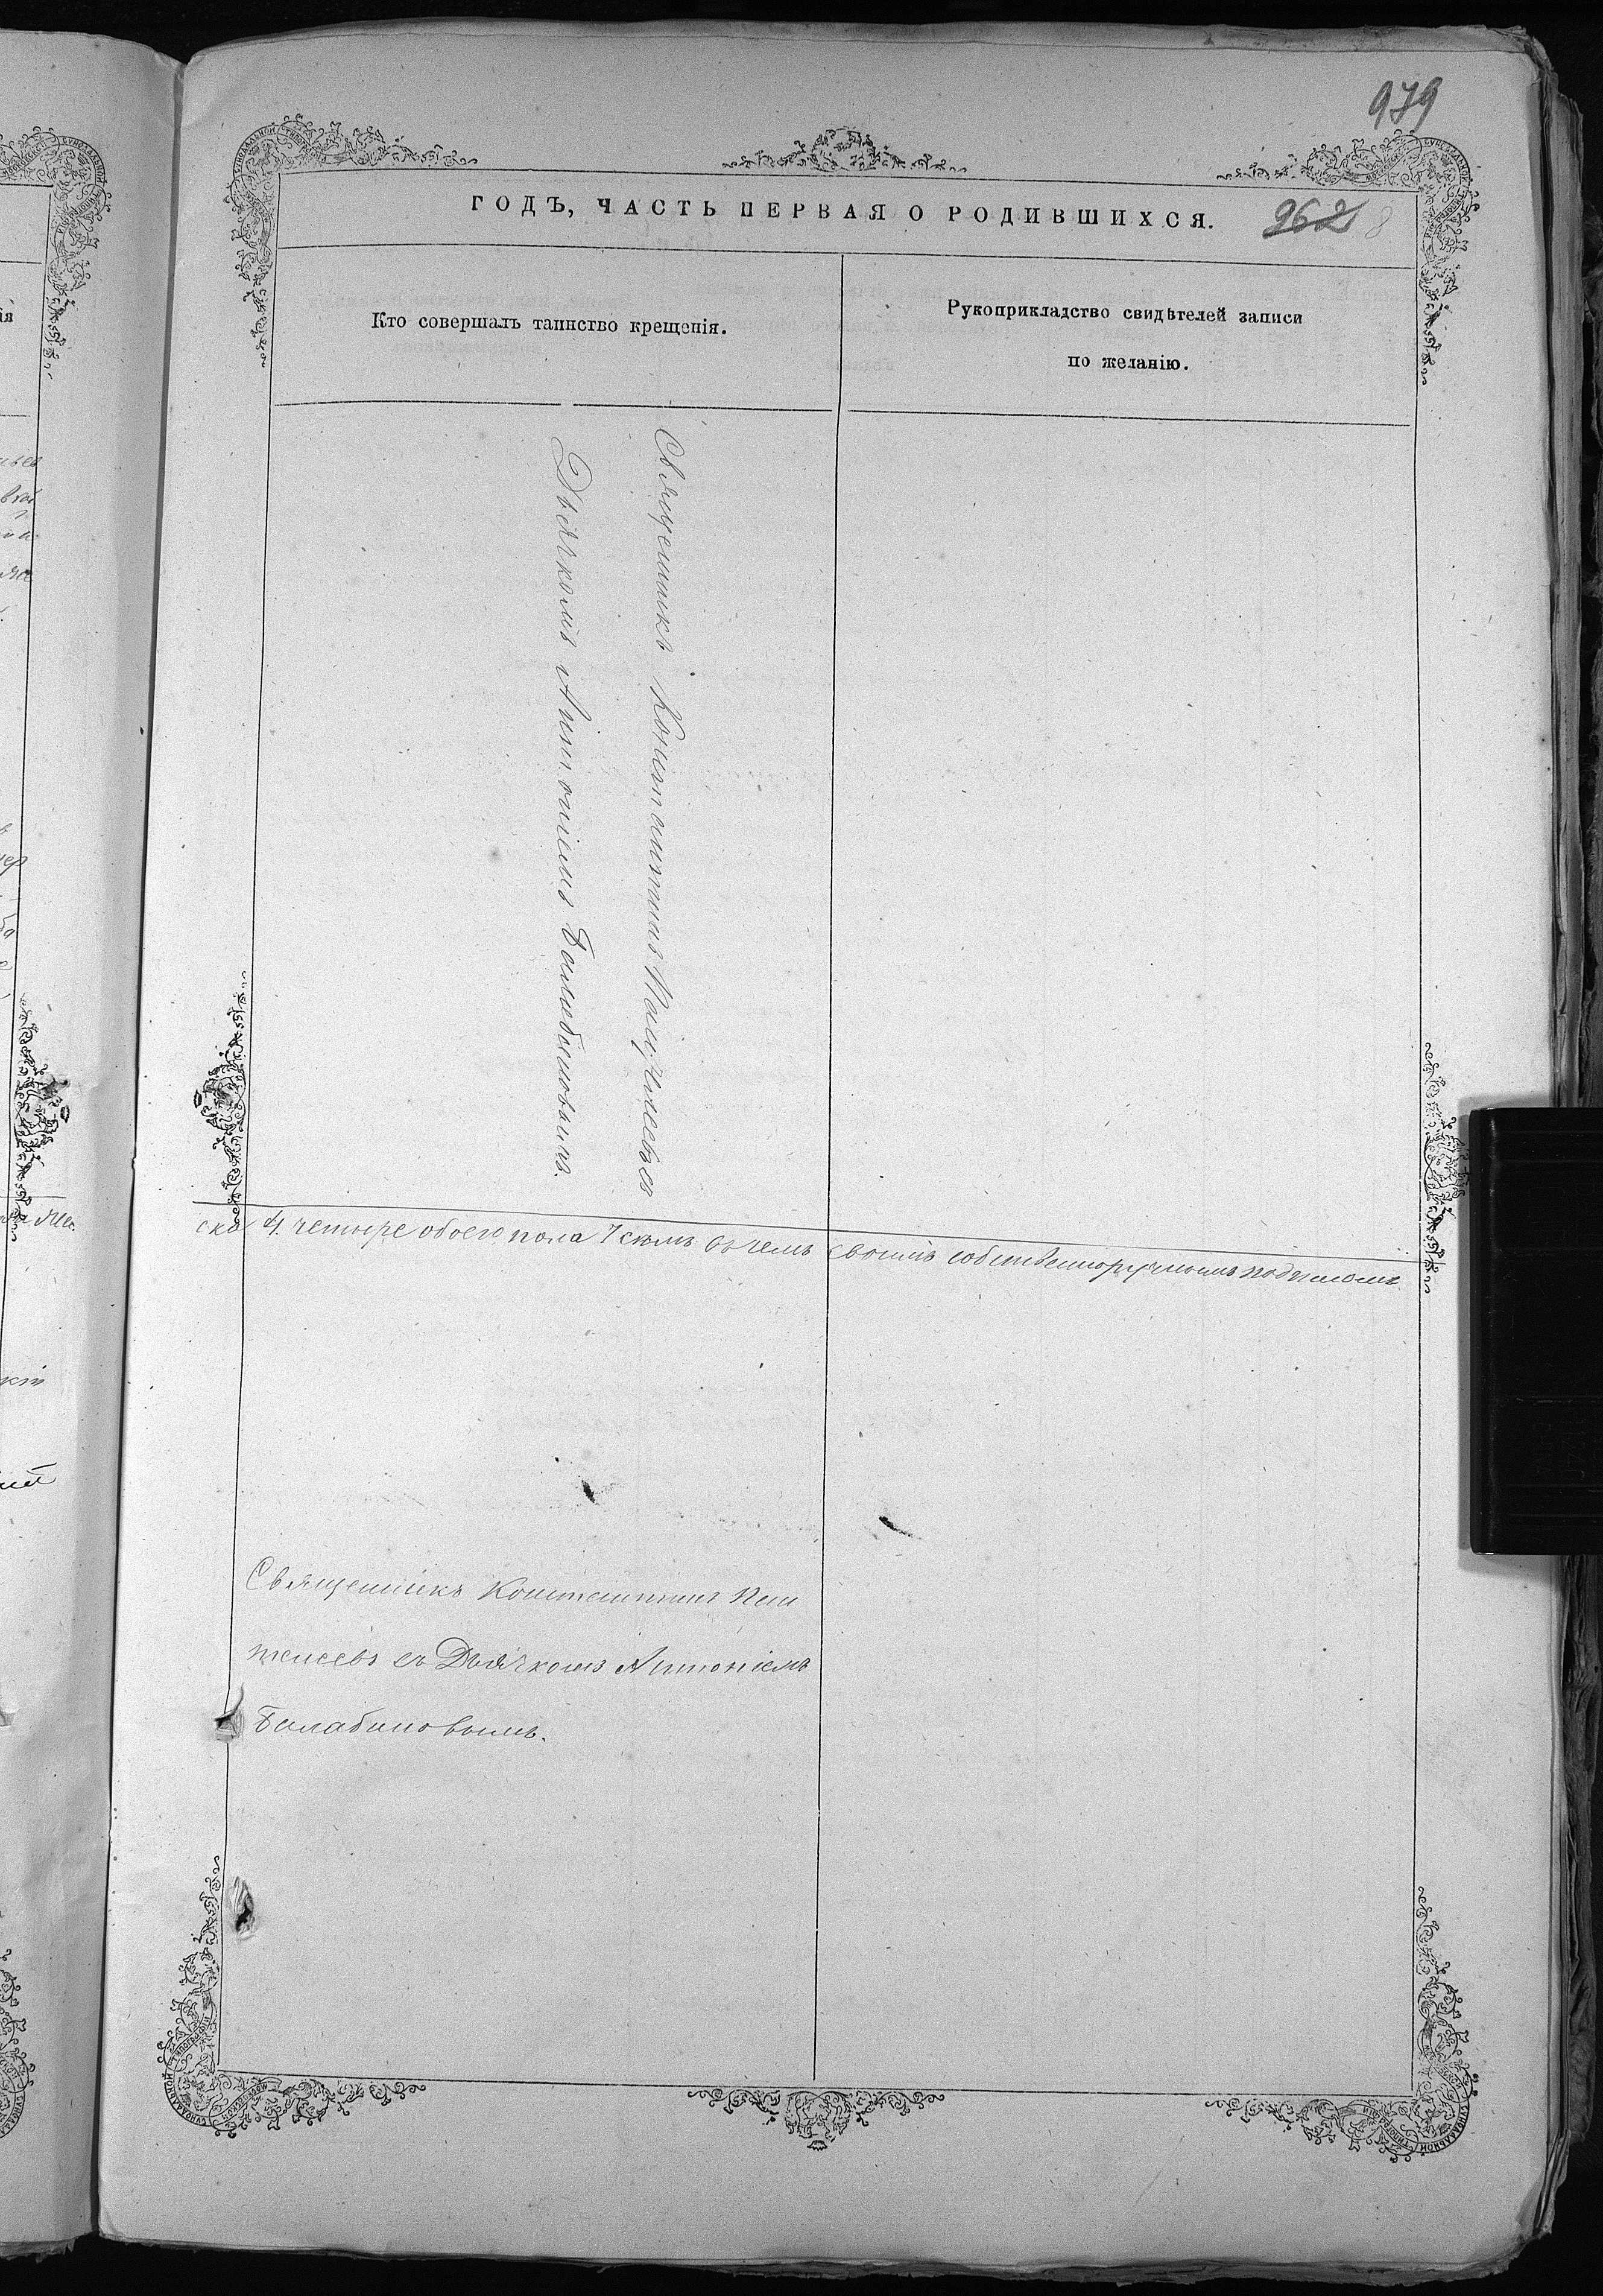 979
ГОДЪ, ЧАСТЬ ПЕРВАЯ О РОДИВШИХСЯ.
962 8
Кто совершалъ таинство крещенія.
Рукоприкладство свидѣтелей записи
по желанію.
Священникъ Константинъ
Дьячкомъ Антоніемъ Балабановымъ.
4. четыре обоего пола 7 семь въ чемъ своимъ собственноручнымъ подписомъ
Священникъ Константинъ Пан
телеевъ съ Дьячкомъ Антоніемъ
Балабановымъ.